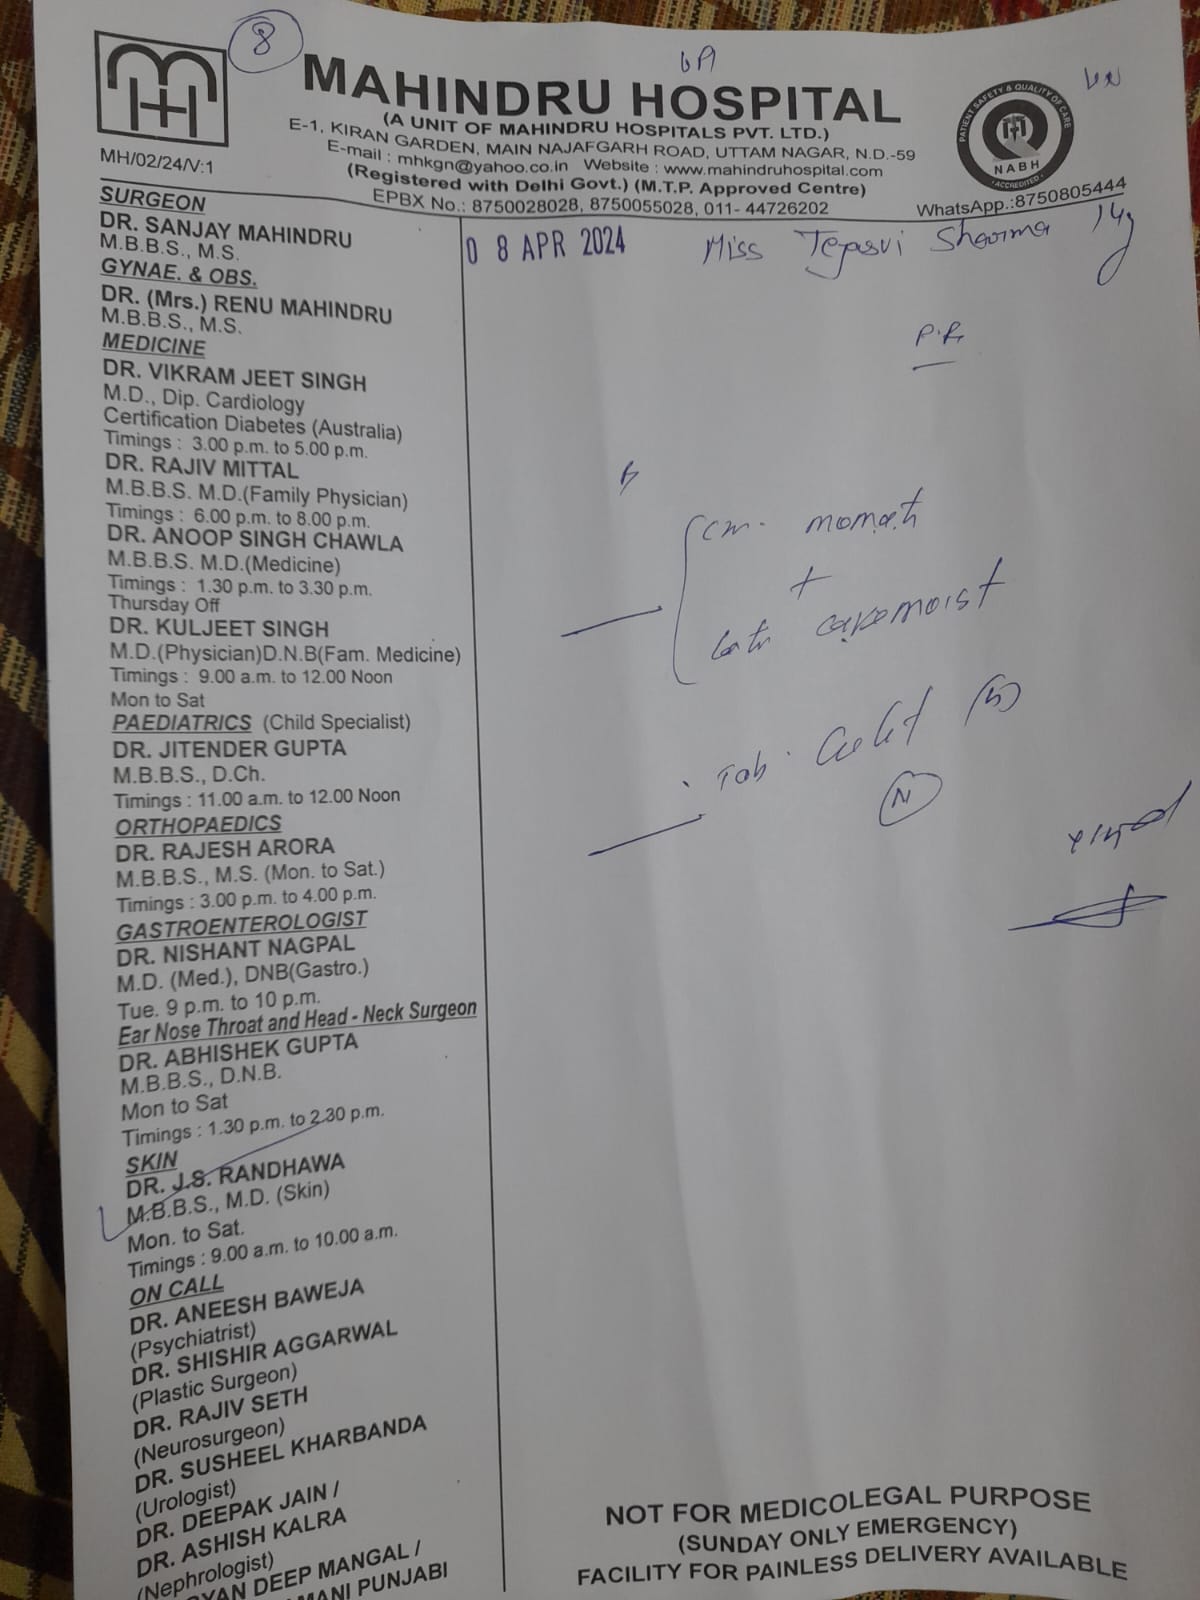 8
MAHINDRU HOSPITAL
(A UNIT OF MAHINDRU HOSPITALS PVT. LTD.)
E-1, KIRAN GARDEN, MAIN NAJAFGARH ROAD, UTTAM NAGAR, N.D.-59
E-mail : mhkgn@yahoo.co.in Website : www.mahindruhospital.com
(Registered with Delhi Govt.) (M.T.P. Approved Centre)
EPBX No.: 8750028028, 8750055028, 011- 44726202
PATIENT SAFETY & QUALITY OF CARE
NABH
ACCREDITED
WhatsApp.:8750805444
MH/02/24/V:1
SURGEON
DR. SANJAY MAHINDRU
M.B.B.S., M.S.
GYNAE. & OBS.
DR. (Mrs.) RENU MAHINDRU
M.B.B.S., M.S.
MEDICINE
DR. VIKRAM JEET SINGH
M.D., Dip. Cardiology
Certification Diabetes (Australia)
Timings : 3.00 p.m. to 5.00 p.m.
DR. RAJIV MITTAL
M.B.B.S. M.D.(Family Physician)
Timings : 6.00 p.m. to 8.00 p.m.
DR. ANOOP SINGH CHAWLA
M.B.B.S. M.D.(Medicine)
Timings : 1.30 p.m. to 3.30 p.m.
Thursday Off
DR. KULJEET SINGH
M.D.(Physician)D.N.B(Fam. Medicine)
Timings : 9.00 a.m. to 12.00 Noon
Mon to Sat
PAEDIATRICS (Child Specialist)
DR. JITENDER GUPTA
M.B.B.S., D.Ch.
Timings : 11.00 a.m. to 12.00 Noon
ORTHOPAEDICS
DR. RAJESH ARORA
M.B.B.S., M.S. (Mon. to Sat.)
Timings : 3.00 p.m. to 4.00 p.m.
GASTROENTEROLOGIST
DR. NISHANT NAGPAL
M.D. (Med.), DNB(Gastro.)
Tue. 9 p.m. to 10 p.m.
Ear Nose Throat and Head - Neck Surgeon
DR. ABHISHEK GUPTA
M.B.B.S., D.N.B.
Mon to Sat
Timings : 1.30 p.m. to 2.30 p.m.
SKIN
DR. J.S. RANDHAWA
M.B.B.S., M.D. (Skin)
Mon. to Sat.
Timings : 9.00 a.m. to 10.00 a.m.
ON CALL
DR. ANEESH BAWEJA
(Psychiatrist)
DR. SHISHIR AGGARWAL
(Plastic Surgeon)
DR. RAJIV SETH
(Neurosurgeon)
DR. SUSHEEL KHARBANDA
(Urologist)
DR. DEEPAK JAIN /
DR. ASHISH KALRA
(Nephrologist)
YAN DEEP MANGAL /
MANI PUNJABI
08 APR 2024
Miss Tejasvi Sharma
P.R.
momate
+
cakemoist
Tab.
N
NOT FOR MEDICOLEGAL PURPOSE
(SUNDAY ONLY EMERGENCY)
FACILITY FOR PAINLESS DELIVERY AVAILABLE